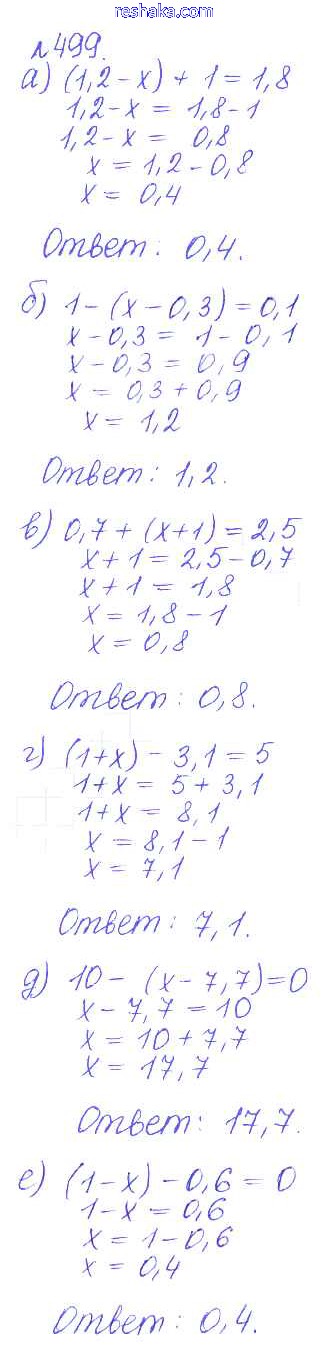 reshaka.com
№499.
а) (1,2 - x) + 1 = 1,8
1,2 - x = 1,8 - 1
1,2 - x = 0,8
x = 1,2 - 0,8
x = 0,4
Ответ: 0,4.
б) 1 - (x - 0,3) = 0,1
x - 0,3 = 1 - 0,1
x - 0,3 = 0,9
x = 0,3 + 0,9
x = 1,2
Ответ: 1,2.
в) 0,7 + (x + 1) = 2,5
x + 1 = 2,5 - 0,7
x + 1 = 1,8
x = 1,8 - 1
x = 0,8
Ответ: 0,8.
г) (1 + x) - 3,1 = 5
1 + x = 5 + 3,1
1 + x = 8,1
x = 8,1 - 1
x = 7,1
Ответ: 7,1.
д) 10 - (x - 7,7) = 0
x - 7,7 = 10
x = 10 + 7,7
x = 17,7
Ответ: 17,7.
е) (1 - x) - 0,6 = 0
1 - x = 0,6
x = 1 - 0,6
x = 0,4
Ответ: 0,4.